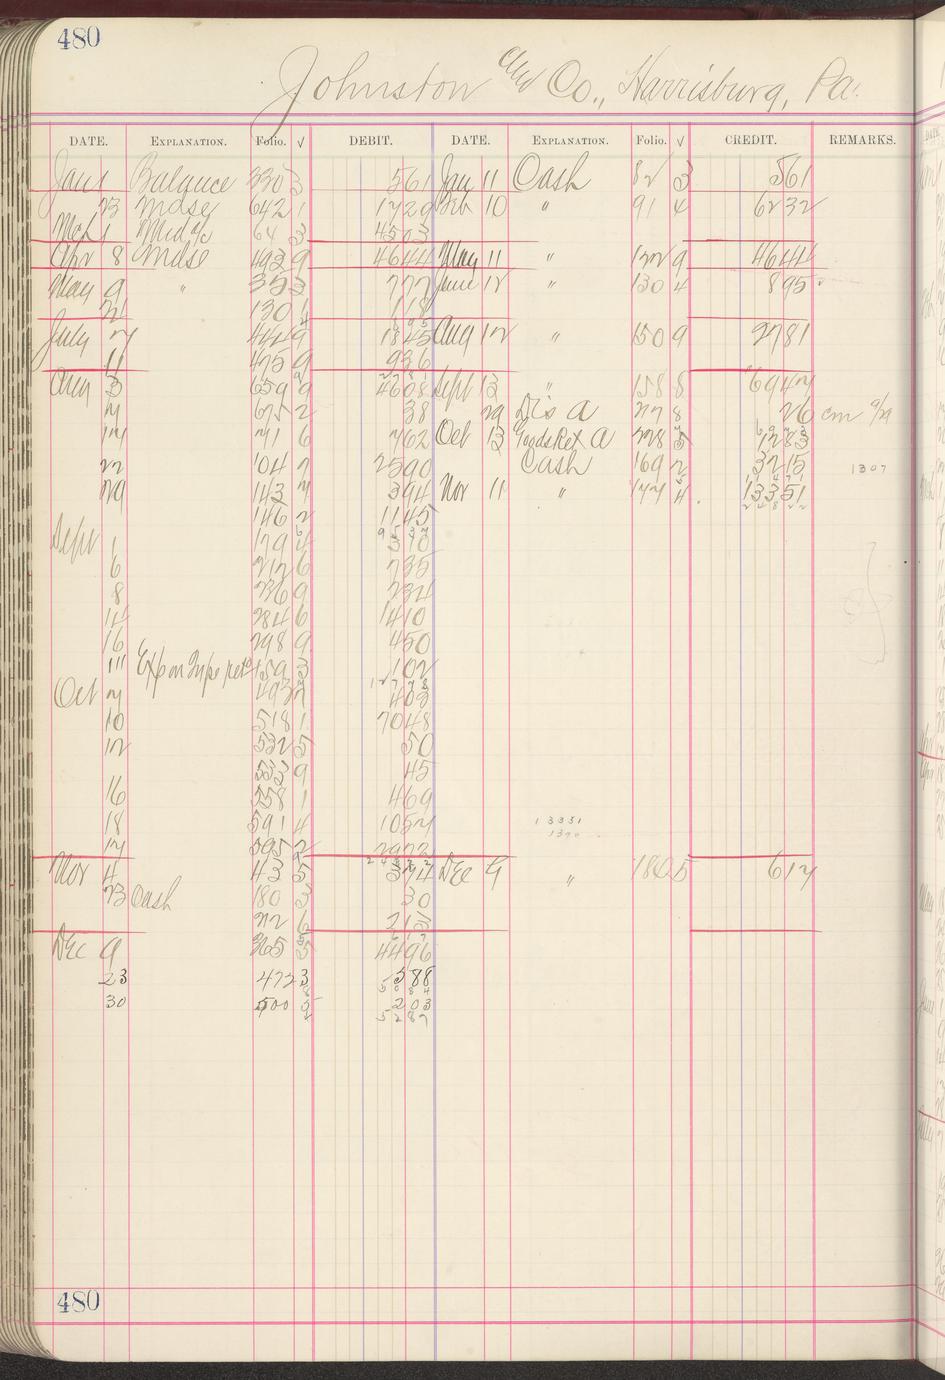 480
Johnston and Co., Harrisburg, Pa.
DATE. EXPLANATION. Folio. √ DEBIT. DATE. EXPLANATION. Folio. √ CREDIT. REMARKS.
Jan 1 Balance 330 3 561 Jan 11 Cash 82 3 561
23 Mdse 642 1 1729 Feb 10 " 91 4 6232
Mch 1 64 3 4503
Apr 8 Mdse 493 9 4644 May 11 " 122 9 4644
May 9 " 353 777 June 12 " 130 4 895
21 130 1 118
July 7 444 9 1845 Aug 12 " 150 9 2781
11 475 9 936
Aug 3 659 9 4608 Sept 13 " 158 8 6947
7 675 2 38 29 Dis A 278 8 26 cm
14 71 6 762 Oct 13 Goods Ret A 228 5 1283
22 104 7 2590 Cash 169 2 3215 1307
29 143 7 394 Nov 11 " 177 4 13351
146 2 1145
Sept 1 179 4 310
6 212 6 735
8 236 9 734
14 284 6 1410
16 298 9 450
159 3 102
Oct 7 493 7 403
10 518 1 7048
12 532 5 50
553 9 45
16 558 1 469
18 591 4 1057 13351
17 595 2 2972
Nov 4 43 5 374 Dec 9 " 180 5 617
23 Cash 180 3 30
212 6 213
Dec 9 365 5 4496
23 472 3 588
5084
30 500 5 203
5287
480